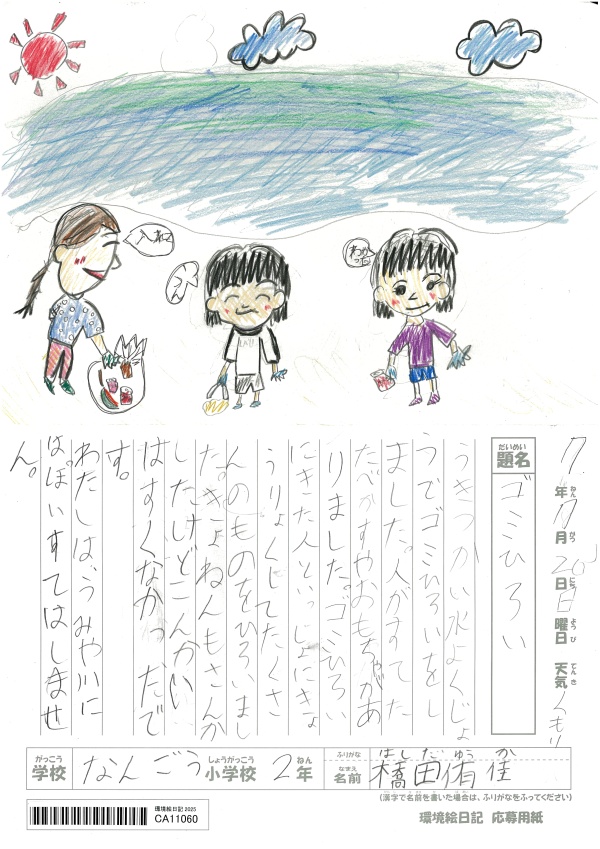 入れて
うん
わかった
7年7月20日日曜日 天気くもり
題名 ゴミひろい
うきつかい水よくじょ
うでゴミひろいをし
ました。人がすてた
たべかすやおもちゃがあ
りました。ゴミひろい
にきた人といっしょにきょ
うりょくしてたくさ
んのものをひろいまし
た。きょねんもさんか
したけどこんかい
はすくなかったで
す。
わたしは、うみや川に
はぽいすてはしませ
ん。
学校 なんごう小学校 2年 ふりがな はしだ ゆうか
名前 橋田侑佳
(漢字で名前を書いた場合は、ふりがなをふってください)
環境絵日記 2025
CA11060
環境絵日記 応募用紙